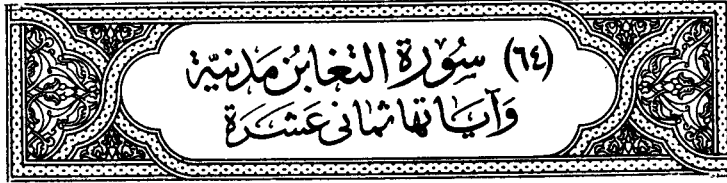 (٦٤) سُورَة التغابُن مَدنيّة
وَآيَاتها ثمانى عَشَرَة